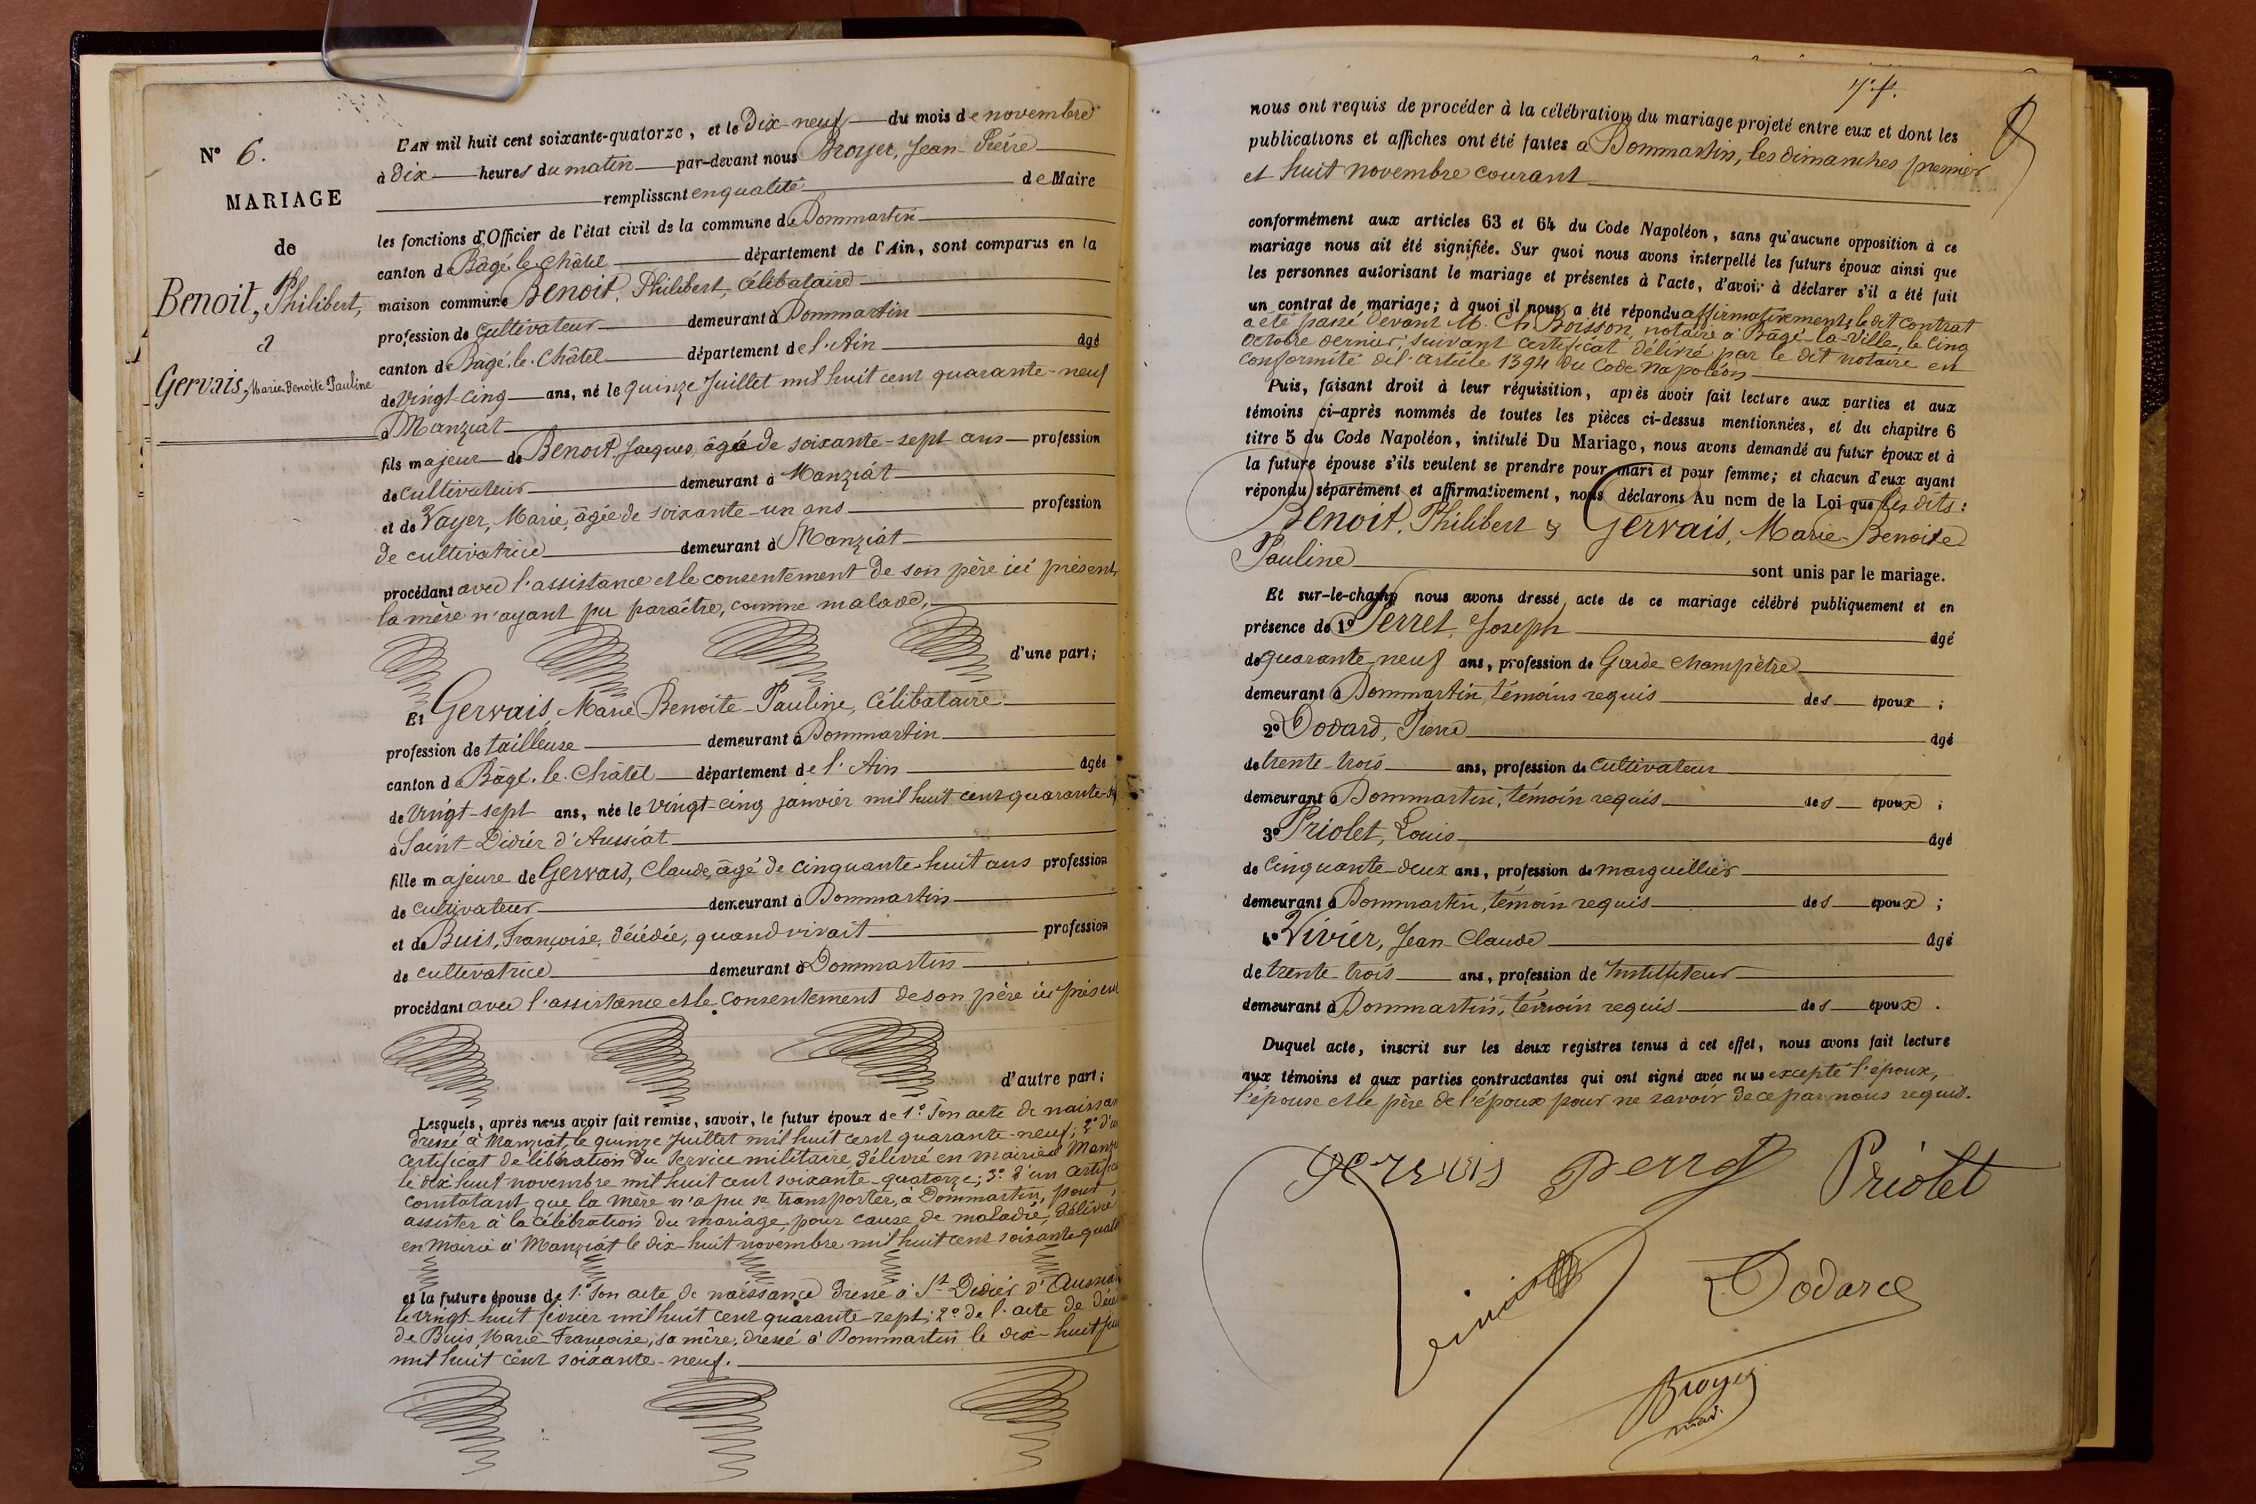 N° 6.
MARIAGE
de
Benoit, Philibert,
à
Gervais, Marie Benoîte Pauline
L'AN mil huit cent soixante-quatorze, et le Dix-neuf du mois de novembre
à Dix heures du matin par-devant nous Broyer, Jean Pierre
remplissant en qualité de Maire
les fonctions d'Officier de l'état civil de la commune de Dommartin
canton de Bâgé-le-Châtel département de l'Ain, sont comparus en la
maison commune Benoit, Philibert, Célibataire
profession de Cultivateur demeurant à Dommartin
canton de Bagé-le-Châtel département de l'Ain âgé
de Vingt-cinq ans, né le quinze Juillet mil huit cent quarante-neuf
à Manziat
fils majeur de Benoit, Jacques, âgé de soixante-sept ans profession
de cultivateur demeurant à Manziat
et de Vayer, Marie, âgée de soixante-un ans profession
de cultivatrice demeurant à Manziat
procédant avec l'assistance et le consentement de son père ici présent,
la mère n'ayant pu paraître, comme malade,
d'une part;
Et Gervais, Marie Benoîte-Pauline, Célibataire
profession de tailleuse demeurant à Dommartin
canton de Bâgé-le-Châtel département de l'Ain âgée
de Vingt-sept ans, née le vingt-cinq janvier mil huit cent quarante-
à Saint-Didier d'Aussiat
fille majeure de Gervais, Claude, âgé de cinquante-huit ans profession
de cultivateur demeurant à Dommartin
et de Buis, Françoise, décédée, quand vivait profession
de cultivatrice demeurant à Dommartin
procédant avec l'assistance et le consentement de son père ici présent
d'autre part;
Lesquels, après nous avoir fait remise, savoir, le futur époux de 1° son acte de naissan
dressé à Manziat, le quinze Juillet mil huit cent quarante-neuf; 2° d'un
certificat de libération du service militaire, délivré en mairie à Manzi
le dix huit novembre mil huit cent soixante-quatorze; 3° d'un certifica
constatant que la mère n'a pu se transporter, à Dommartin, pour
assister à la célébration du mariage pour cause de maladie, délivré
en Mairie à Manziat le dix-huit novembre mil huit cent soixante quato
et la future épouse de 1° son acte de naissance dressé à St Didier d'Aussia
le vingt-huit février mil huit cent quarante-sept; 2° de l'acte de déc
de Buis, Marie Françoise, sa mère, dressé à Dommartin le dix-huit
mil huit cent soixante-neuf.
nous ont requis de procéder à la célébration du mariage projeté entre eux et dont les
publications et affiches ont été faites à Dommartin, les dimanches premier
et huit novembre courant
conformément aux articles 63 et 64 du Code Napoléon, sans qu'aucune opposition à ce
mariage nous ait été signifiée. Sur quoi nous avons interpellé les futurs époux ainsi que
les personnes autorisant le mariage et présentes à l'acte, d'avoir à déclarer s'il a été fait
un contrat de mariage; à quoi il nous a été répondu affirmativement, le dit contrat
a été passé devant M. Ch. Boisson, notaire à Bâgé-la-Ville, le Cinq
octobre dernier, suivant certificat délivré par le dit notaire en
conformité de l'article 1394 du Code Napoléon
Puis, faisant droit à leur réquisition, après avoir fait lecture aux parties et aux
témoins ci-après nommés de toutes les pièces ci-dessus mentionnées, et du chapitre 6
titre 5 du Code Napoléon, intitulé Du Mariage, nous avons demandé au futur époux et à
la future épouse s'ils veulent se prendre pour mari et pour femme; et chacun d'eux ayant
répondu séparément et affirmativement, nous déclarons Au nom de la Loi que les dits:
Benoit, Philibert & Gervais, Marie-Benoîte
Pauline sont unis par le mariage.
Et sur-le-champ nous avons dressé acte de ce mariage célébré publiquement et en
présence de 1° Perret, Joseph âgé
de quarante-neuf ans, profession de Garde champêtre
demeurant à Dommartin, témoins requis des époux;
2° Dodard, Pierre âgé
de trente-trois ans, profession de cultivateur
demeurant à Dommartin, témoin requis des époux;
3° Priolet, Louis âgé
de cinquante-deux ans, profession de marguillier
demeurant à Dommartin, témoin requis des époux;
4° Vivier, Jean Claude âgé
de trente-trois ans, profession de Instituteur
demeurant à Dommartin, témoin requis des époux.
Duquel acte, inscrit sur les deux registres tenus à cet effet, nous avons fait lecture
aux témoins et aux parties contractantes qui ont signé avec nous excepté l'époux,
l'épouse et le père de l'époux pour ne savoir de ce par nous requis.
Gervais Perret Priolet
Dodard
Broyer